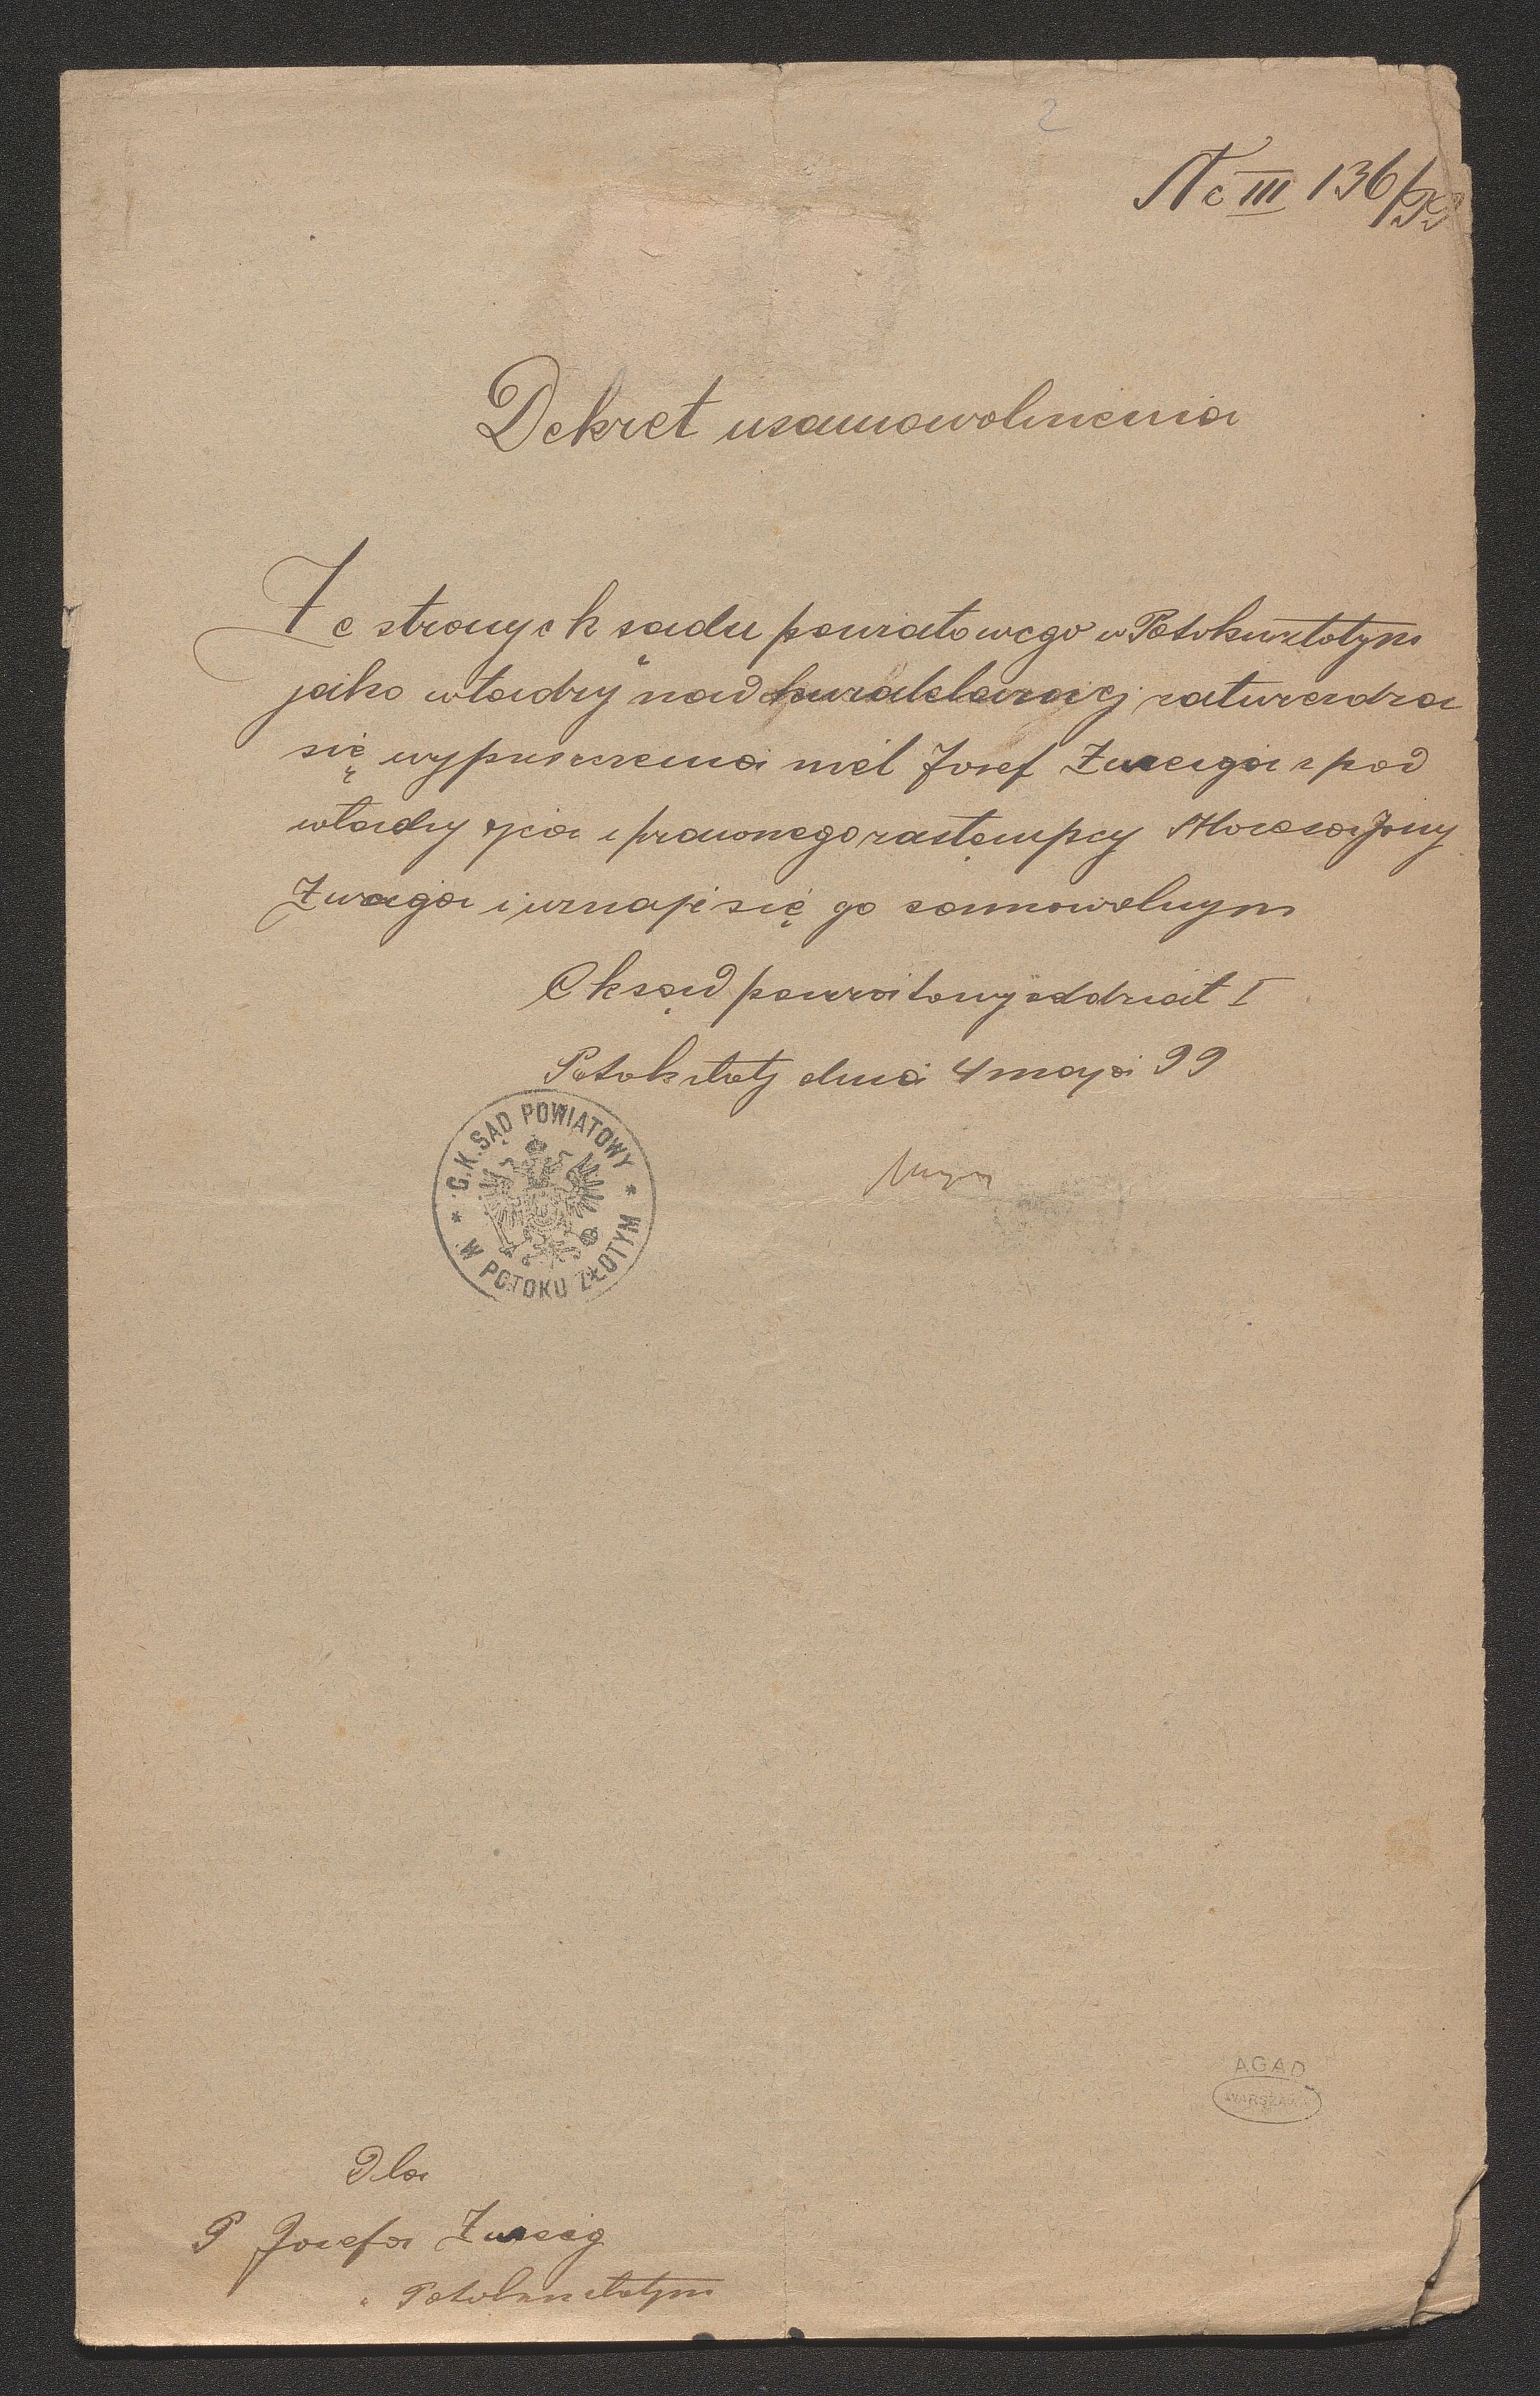 2
Nc III 136/99
Dekret usamowolnienia
Ze strony c k sądu powiatowego w Potoku złotym
jako władzy nadkuratelarnej zatwierdza
się wypuszczenia niel Josef Zweiga z pod
władzy ojca i prawnego zastęmpcy
Zweiga i uznaje się go samowolnym
C k sąd powiatowy oddział I
Potok złoty dnia 4 maja 99
C.K. SĄD POWIATOWY
W POTOKU ZŁOTYM
AGAD
WARSZAWA
Dla
P Josefa Zweig
w Potoku złotym